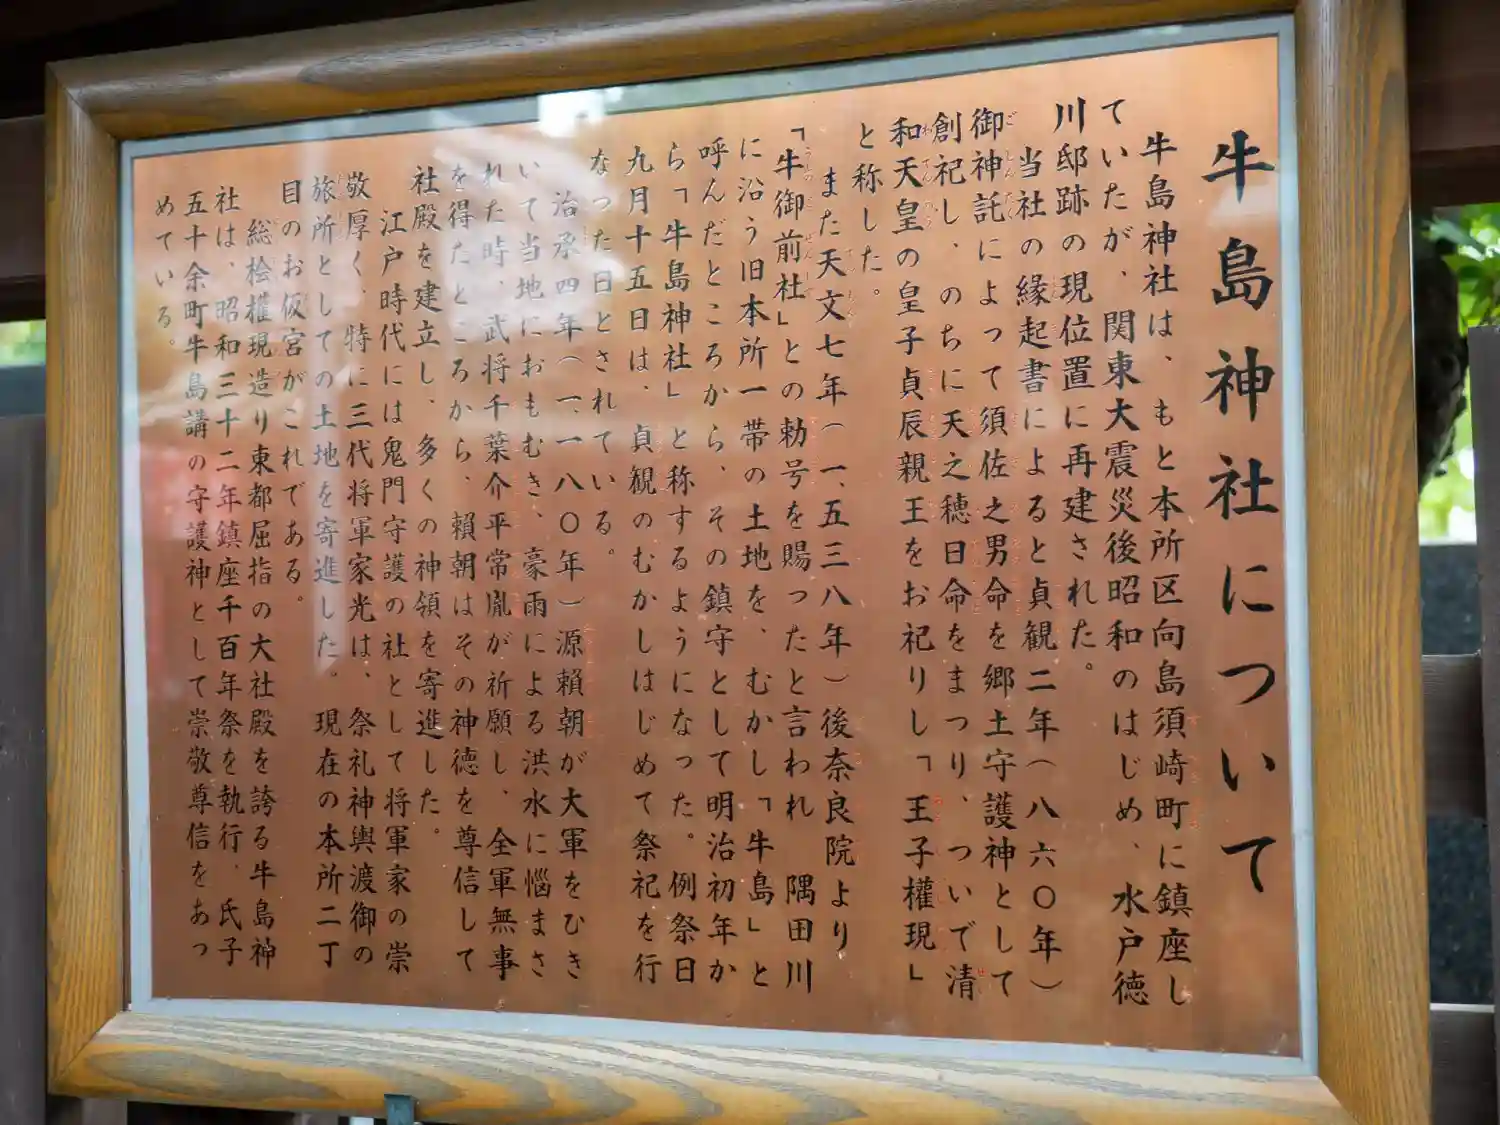 牛島神社について
牛島神社は、もと本所区向島須崎町に鎮座し
ていたが、関東大震災後昭和のはじめ、水戸徳
川邸跡の現位置に再建された。
当社の縁起書によると貞観二年(八六〇年)
御神託によって須佐之男命を郷土守護神として
創祀し、のちに天之穂日命をまつり、ついで清
和天皇の皇子貞辰親王をお祀りし「王子權現」
と称した。
また天文七年(一、五三八年)後奈良院より
「牛御前社」との勅号を賜ったと言われ 隅田川
に沿う旧本所一帯の土地を、むかし「牛島」と
呼んだところから、その鎮守として明治初年か
ら「牛島神社」と称するようになった。例祭日
九月十五日は、貞観のむかしはじめて祭祀を行
なった日とされている。
治承四年(一、一八〇年)源頼朝が大軍をひき
いて当地におもむき、豪雨による洪水に悩まさ
れた時、武将千葉介平常胤が祈願し、全軍無事
を得たところから、頼朝はその神徳を尊信して
社殿を建立し、多くの神領を寄進した。
江戸時代には鬼門守護の社として将軍家の崇
敬厚く、特に三代将軍家光は、祭礼神輿渡御の
旅所としての土地を寄進した。現在の本所二丁
目のお仮宮がこれである。
総桧權現造り東都屈指の大社殿を誇る牛島神
社は、昭和三十二年鎮座千百年祭を執行、氏子
五十余町牛島講の守護神として崇敬尊信をあつ
めている。